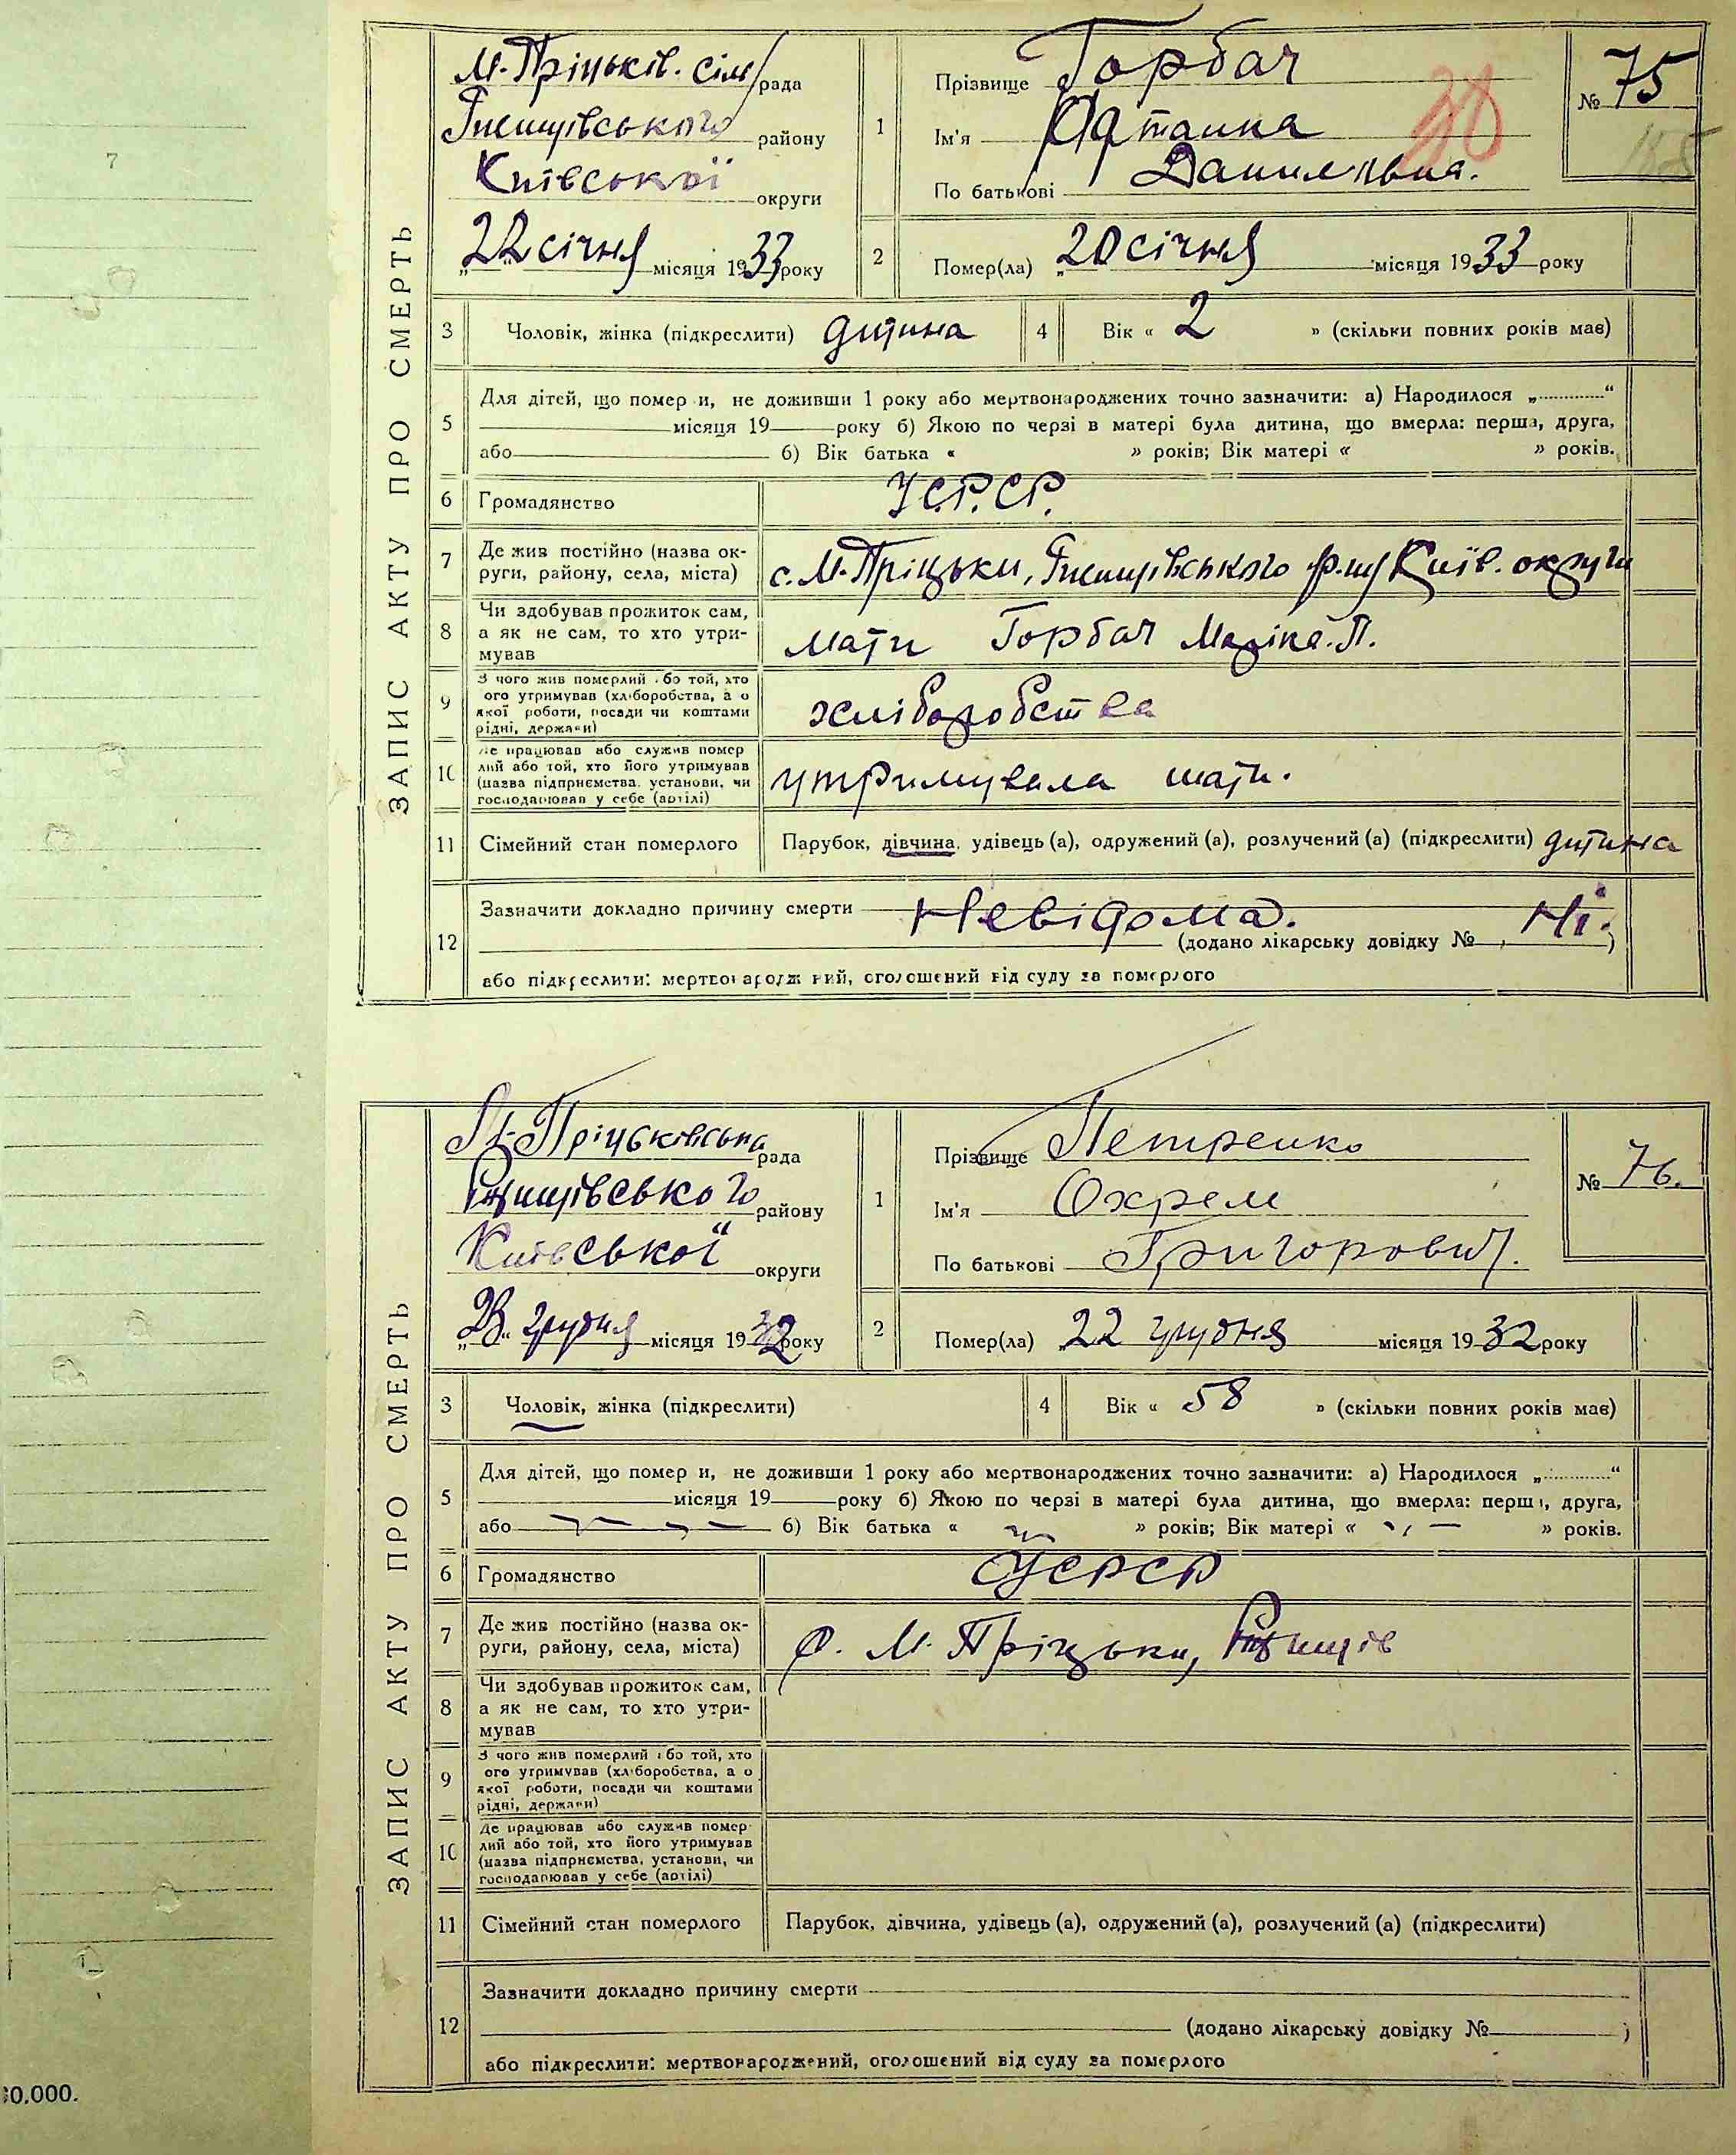 7
30.000.
ЗАПИС АКТУ ПРО СМЕРТЬ
М. Пріцьків. сіл рада
Ржищівського району
Київської округи
„22“ січня місяця 1933 року
1
Прізвище Горбач
Ім'я
По батькові Данилівна.
№ 75
2
Помер(ла) „20 січня місяця 1933 року
3
Чоловік, жінка (підкреслити) дитина
4
Вік « 2 » (скільки повних років має)
5
Для дітей, що помер и, не доживши 1 року або мертвонароджених точно зазначити: а) Народилося „ “
місяця 19 року б) Якою по черзі в матері була дитина, що вмерла: перша, друга,
або б) Вік батька « » років; Вік матері « » років.
6
Громадянство
У.С.Р.С.Р.
7
Де жив постійно (назва ок-
руги, району, села, міста)
с. М. Пріцьки, Ржищівського р-ну Київ. округи
8
Чи здобував прожиток сам,
а як не сам, то хто утри-
мував
мати Горбач П.
9
З чого жив померлий або той, хто
ого утримував (хліборобства, а о
якої роботи, посади чи коштами
рідні, держави)
хліборобства
10
Де працював або служив помер
лий або той, хто його утримував
(назва підприємства, установи, чи
господарював у себе (артілі)
утримувала мати.
11
Сімейний стан померлого
Парубок, дівчина, удівець (а), одружений (а), розлучений (а) (підкреслити) дитина
12
Зазначити докладно причину смерти Невідома.
(додано лікарську довідку № Ні. )
або підкреслити: мертвонароджений, оголошений від суду за померлого
ЗАПИС АКТУ ПРО СМЕРТЬ
Пріцьківська рада
Ржищівського району
Київської округи
„23“ грудня місяця 1932 року
1
Прізвище Петренко
Ім'я Охрем
По батькові Григорович.
№ 76.
2
Помер(ла) „22 грудня місяця 1932 року
3
Чоловік, жінка (підкреслити)
4
Вік « 58 » (скільки повних років має)
5
Для дітей, що помер и, не доживши 1 року або мертвонароджених точно зазначити: а) Народилося „ “
місяця 19 року б) Якою по черзі в матері була дитина, що вмерла: перша, друга,
або б) Вік батька « » років; Вік матері « » років.
6
Громадянство
УСРСР
7
Де жив постійно (назва ок-
руги, району, села, міста)
с. М. Пріцьки, Ржищів
8
Чи здобував прожиток сам,
а як не сам, то хто утри-
мував
9
З чого жив померлий або той, хто
ого утримував (хліборобства, а о
якої роботи, посади чи коштами
рідні, держави)
10
Де працював або служив помер
лий або той, хто його утримував
(назва підприємства, установи, чи
господарював у себе (артілі)
11
Сімейний стан померлого
Парубок, дівчина, удівець (а), одружений (а), розлучений (а) (підкреслити)
12
Зазначити докладно причину смерти
(додано лікарську довідку № )
або підкреслити: мертвонароджений, оголошений від суду за померлого